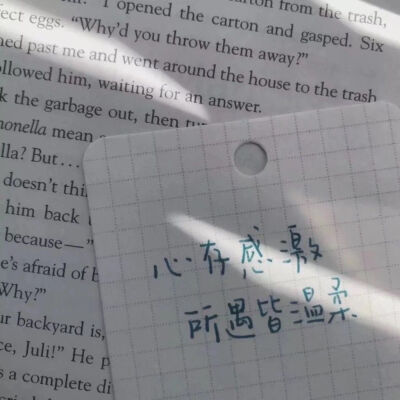 I opened the carton and gasped. Six
fect eggs. “Why’d you throw them away?”
ed past me and went around the house to the trash
ollowed him, waiting for an answer.
k the garbage out, then
monella mean
lla? But…
doesn’t thi
him back
because—”
e’s afraid of
Why?”
ur backyard is,
ce, Juli!” He p
s a complete di
心存感激
所遇皆温柔